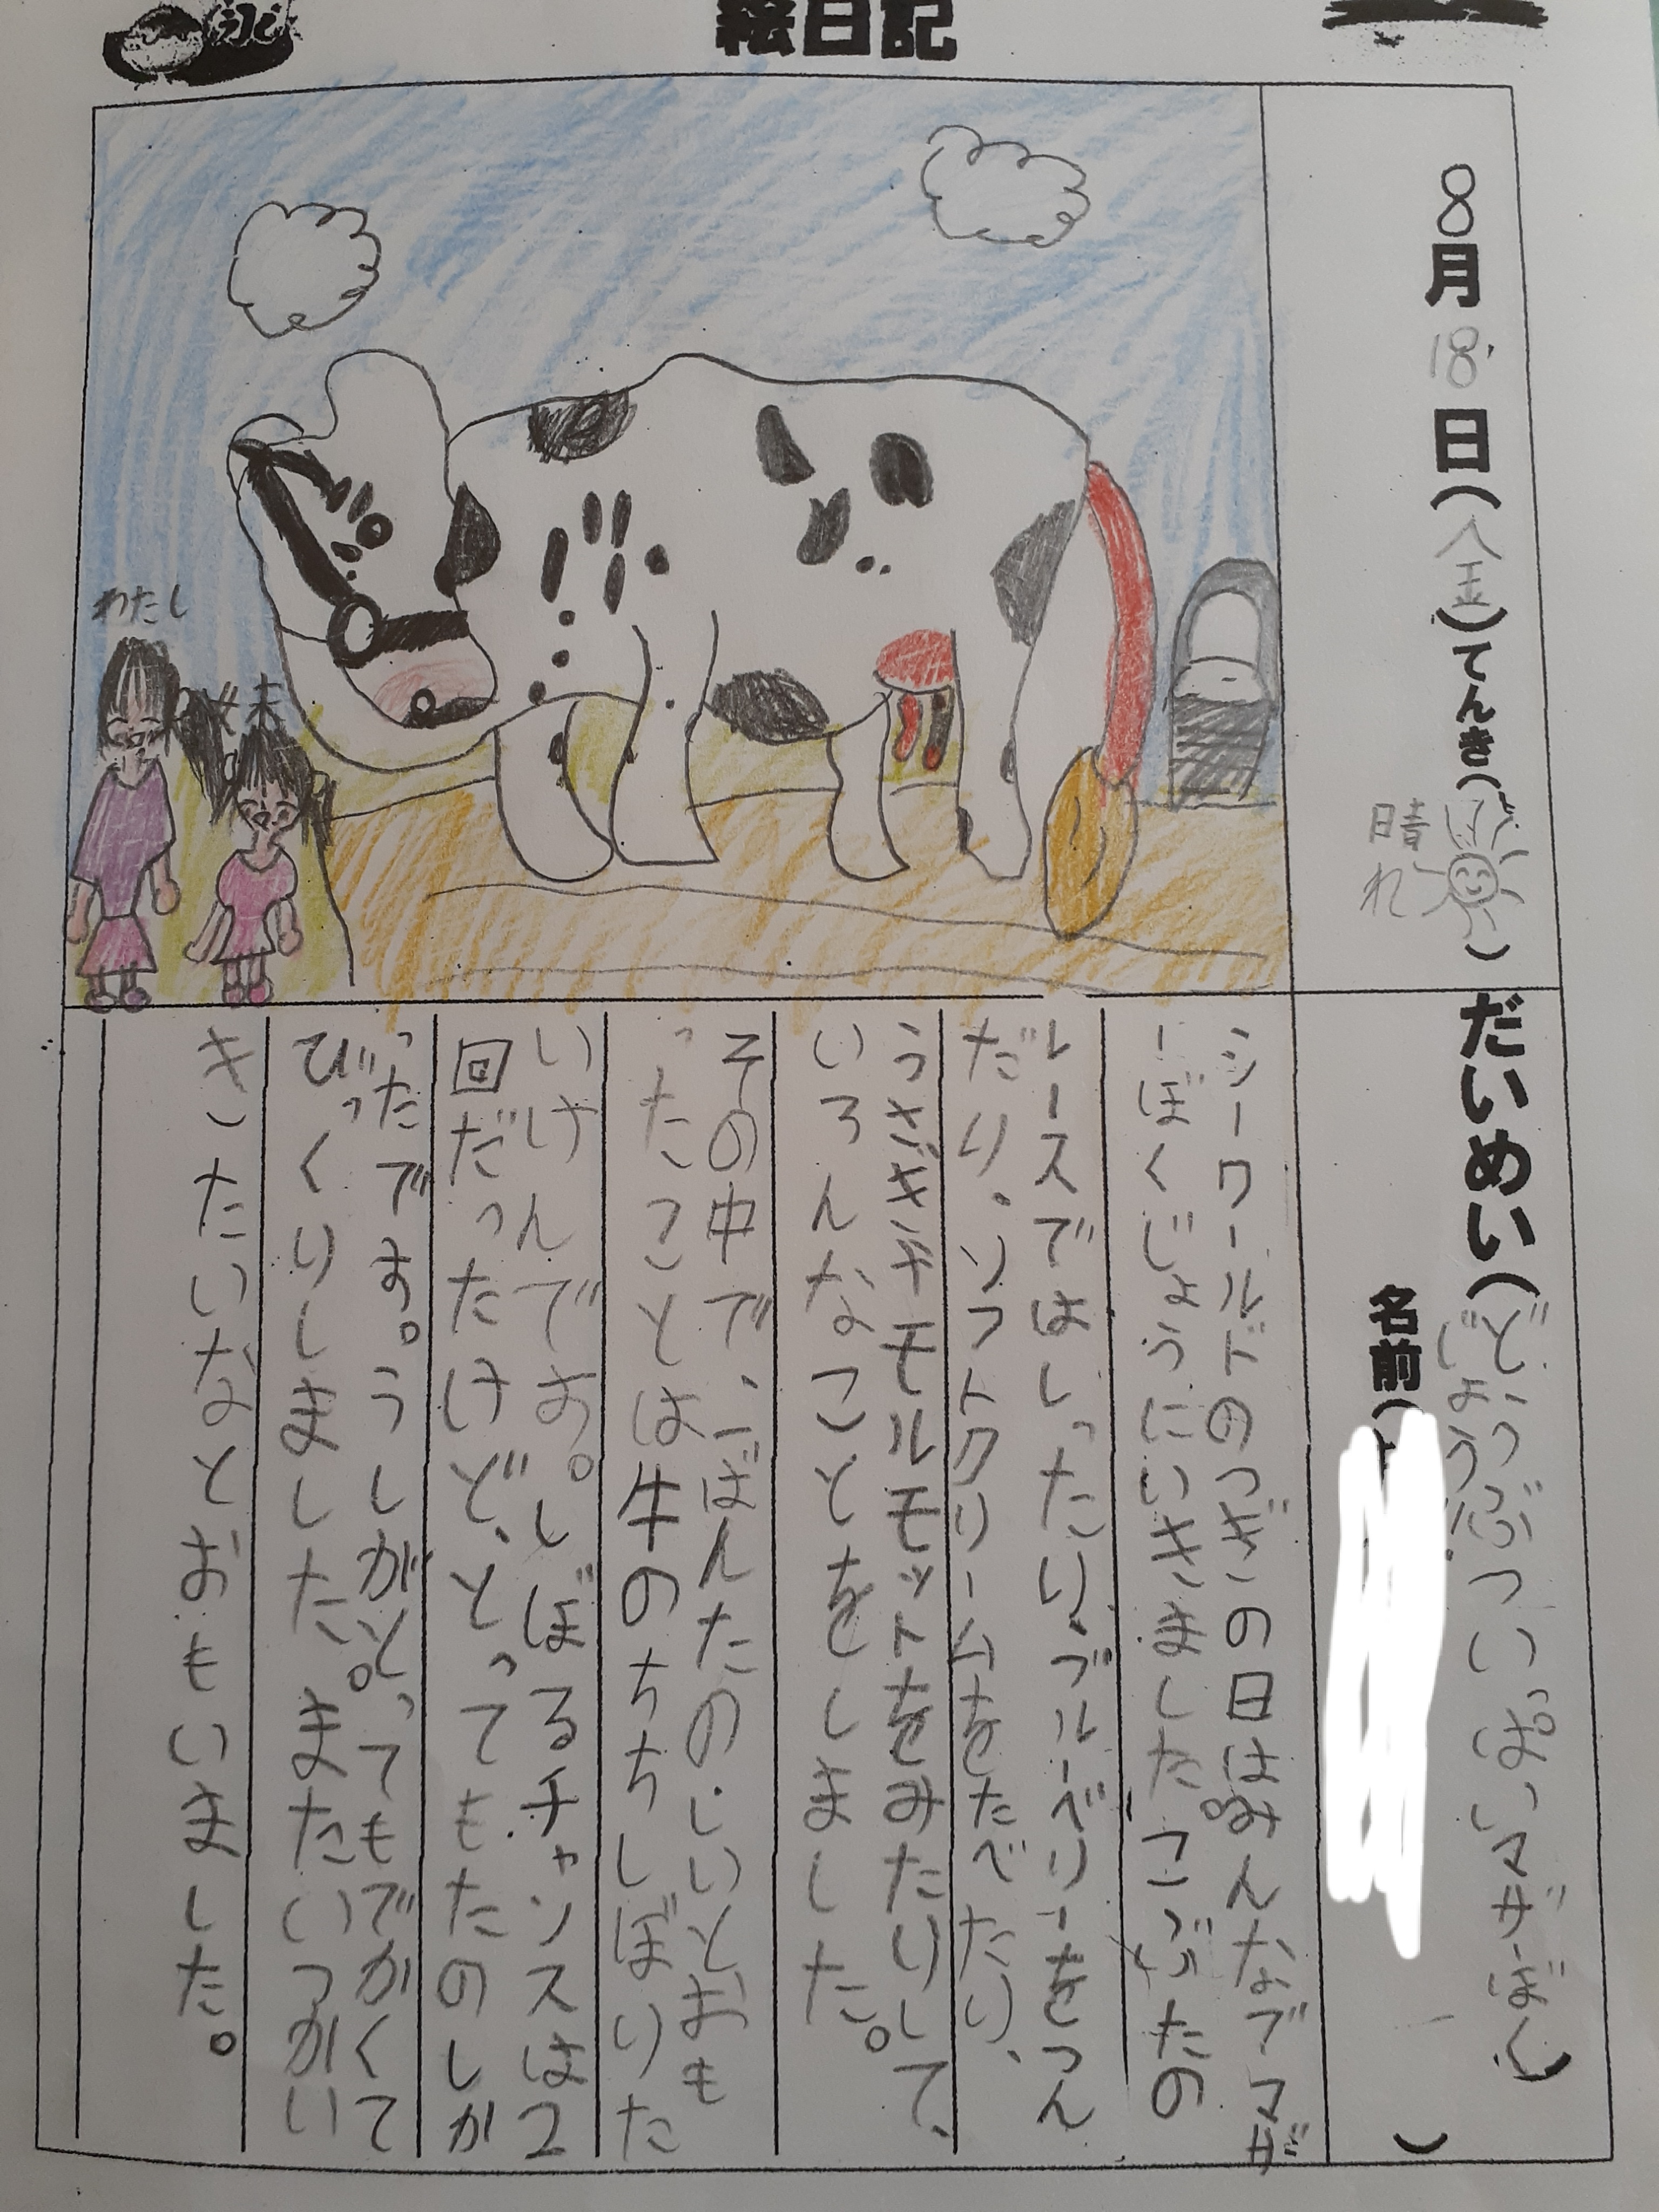 絵日記
8月18日(金)てんき(晴れ)
だいめい(どうぶついっぱいマザーぼくじょう)
名前()
わたし
妹
シーワールドのつぎの日はみんなでマザ
ーぼくじょうにいきました。こぶたの
レースではしったり、ブルーベリーをつん
だり、ソフトクリームをたべたり、
うさぎやモルモットをみたりして、
いろんなことをしました。
その中で、一ばんたのしいとおも
ったことは牛のちちしぼりた
いけんです。しぼるチャンスは2
回だったけど、とってもたのしか
ったです。うしがとってもでかくて
びっくりしました。またいつかい
きたいなとおもいました。